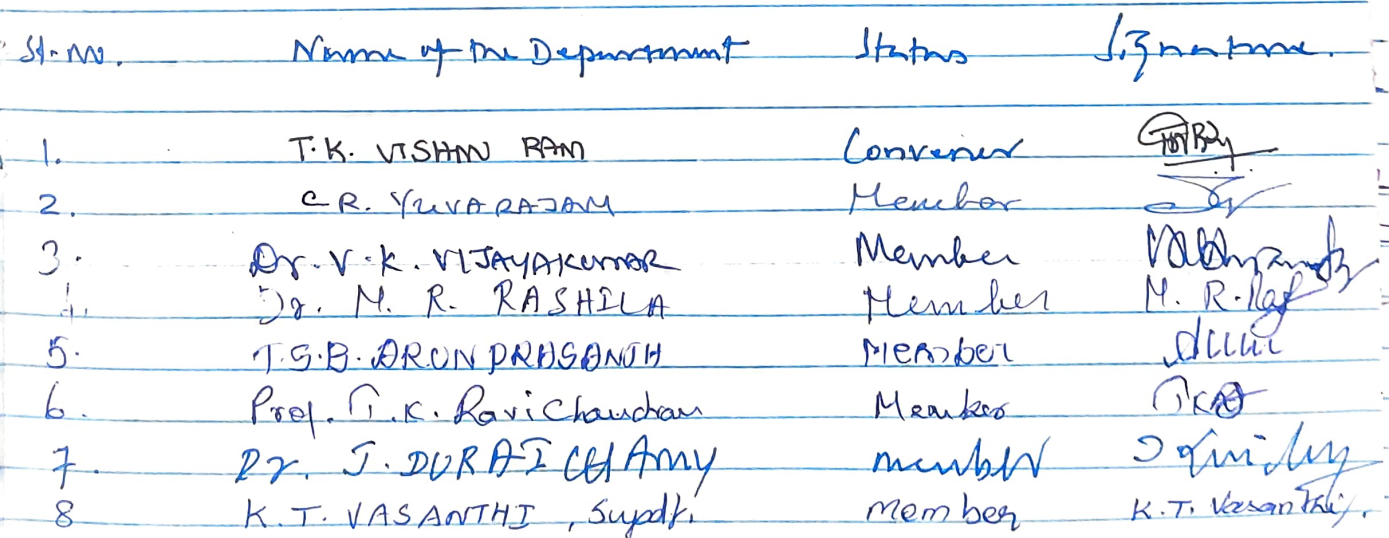 Sl.No. Name of the Department Status Signature.
1. T.K. VISHNU RAM Convener
2. C R. YUVARAJAM Member
3. Dr. V.K. VIJAYAKUMAR Member
4. Dr. M. R. RASHILA Member M. R. Raf
5. T.S.B. ARUN PRASANTH Member
6. Prof. T.K. Ravichandran Member
7. Dr. J. DURAI CHAMY member
8 K.T. VASANTHI, Supdt. member K.T. Vasanthi.